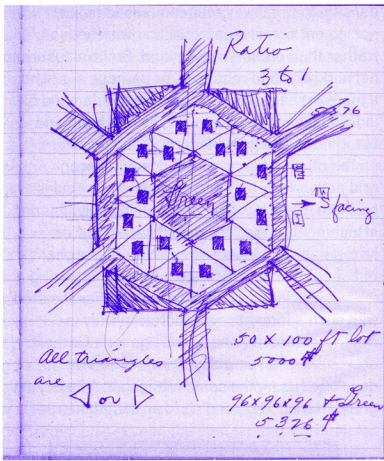 Ratio
3 to 1
Green
facing
50 X 100 ft lot
5000
All triangles
are
or
96x96x96 + Green
5326